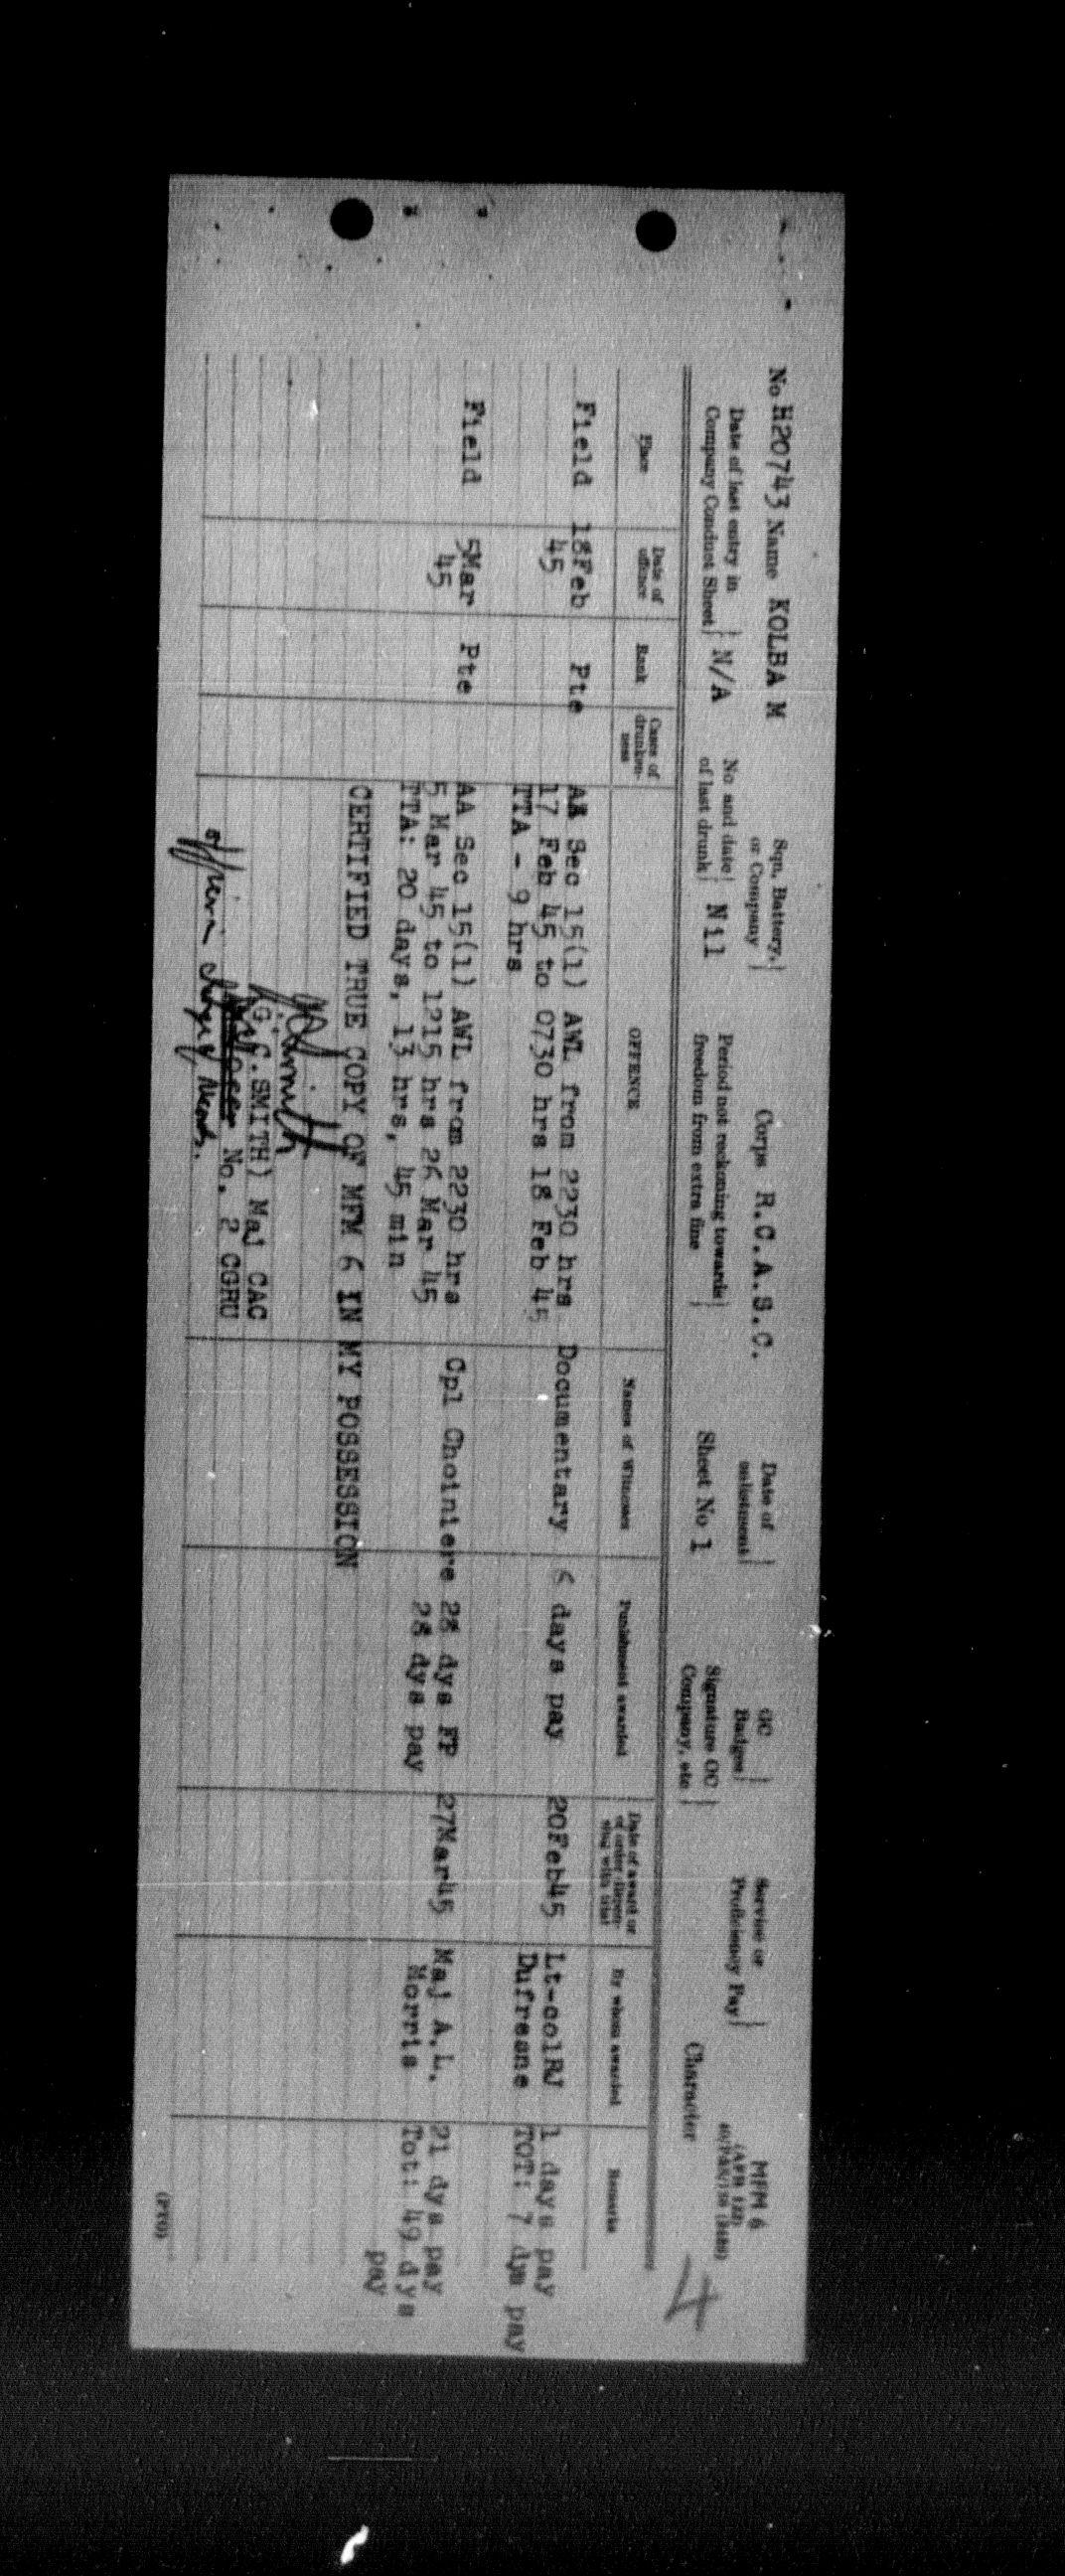 No H20743 Name KOLBA M Sqn, Battery, or Company Corps R.C.A.S.C. Date of enlistment GC Badges Service or Proficiency Pay MFM 6
Date of last entry in Company Conduct Sheet N/A No and date of last drunk Nil Period not reckoning towards freedom from extra fine Sheet No 1 Signature OC Company, etc Character
4
Place Date of offence Rank Cases of drunken-ness OFFENCE Names of Witnesses Punishment awarded Date of award or of order dispen-sing with trial By whom awarded Remarks
Field 18Feb Pte AA Sec 15(1) AWL from 2230 hrs Documentary 6 days pay 20Feb45 Lt-colRJ 1 days pay
45 17 Feb 45 to 0730 hrs 18 Feb 45 Dufresne TOT: 7 dys pay
TTA - 9 hrs
Field 5Mar Pte AA Sec 15(1) AWL from 2230 hrs Cpl Choiniere 28 dys FP 27Mar45 Maj A.L. 21 dys pay
45 5 Mar 45 to 1215 hrs 26 Mar 45 28 dys pay Morris Tot: 49 dys
TTA: 20 days, 13 hrs, 45 min pay
CERTIFIED TRUE COPY OF MFM 6 IN MY POSSESSION
GCSmith
(G.C.SMITH) Maj CAC
No. 2 CGRU
Officer Charge Records.
(PTO)